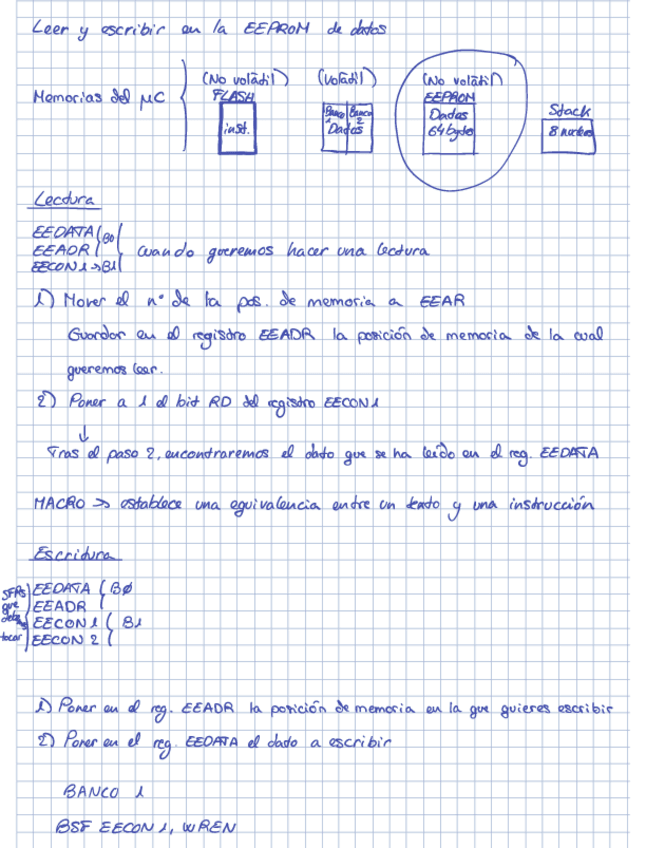 Leer y escribir en la EEPROM de datos
(No volátil) (Volátil) (No volátil)
Memorias del μC { FLASH EEPROM Stack
inst. Banco 1 Banco 2 Datos Datos 64 bytes 8 niveles
Lectura
EEDATA } B0
EEADR } cuando queremos hacer una lectura
EECON1 → B1
1) Mover el nº de la pos. de memoria a EEAR
Guardar en el registro EEADR la posición de memoria de la cual
queremos leer.
2) Poner a 1 el bit RD del registro EECON1
↓
Tras el paso 2, encontraremos el dato que se ha leído en el reg. EEDATA
MACRO => establece una equivalencia entre un texto y una instrucción
Escritura
SFRs que debes tocar
EEDATA } BØ
EEADR
EECON1 } B1
EECON2
1) Poner en el reg. EEADR la posición de memoria en la que quieres escribir
2) Poner en el reg. EEDATA el dato a escribir
BANCO 1
BSF EECON1, WREN